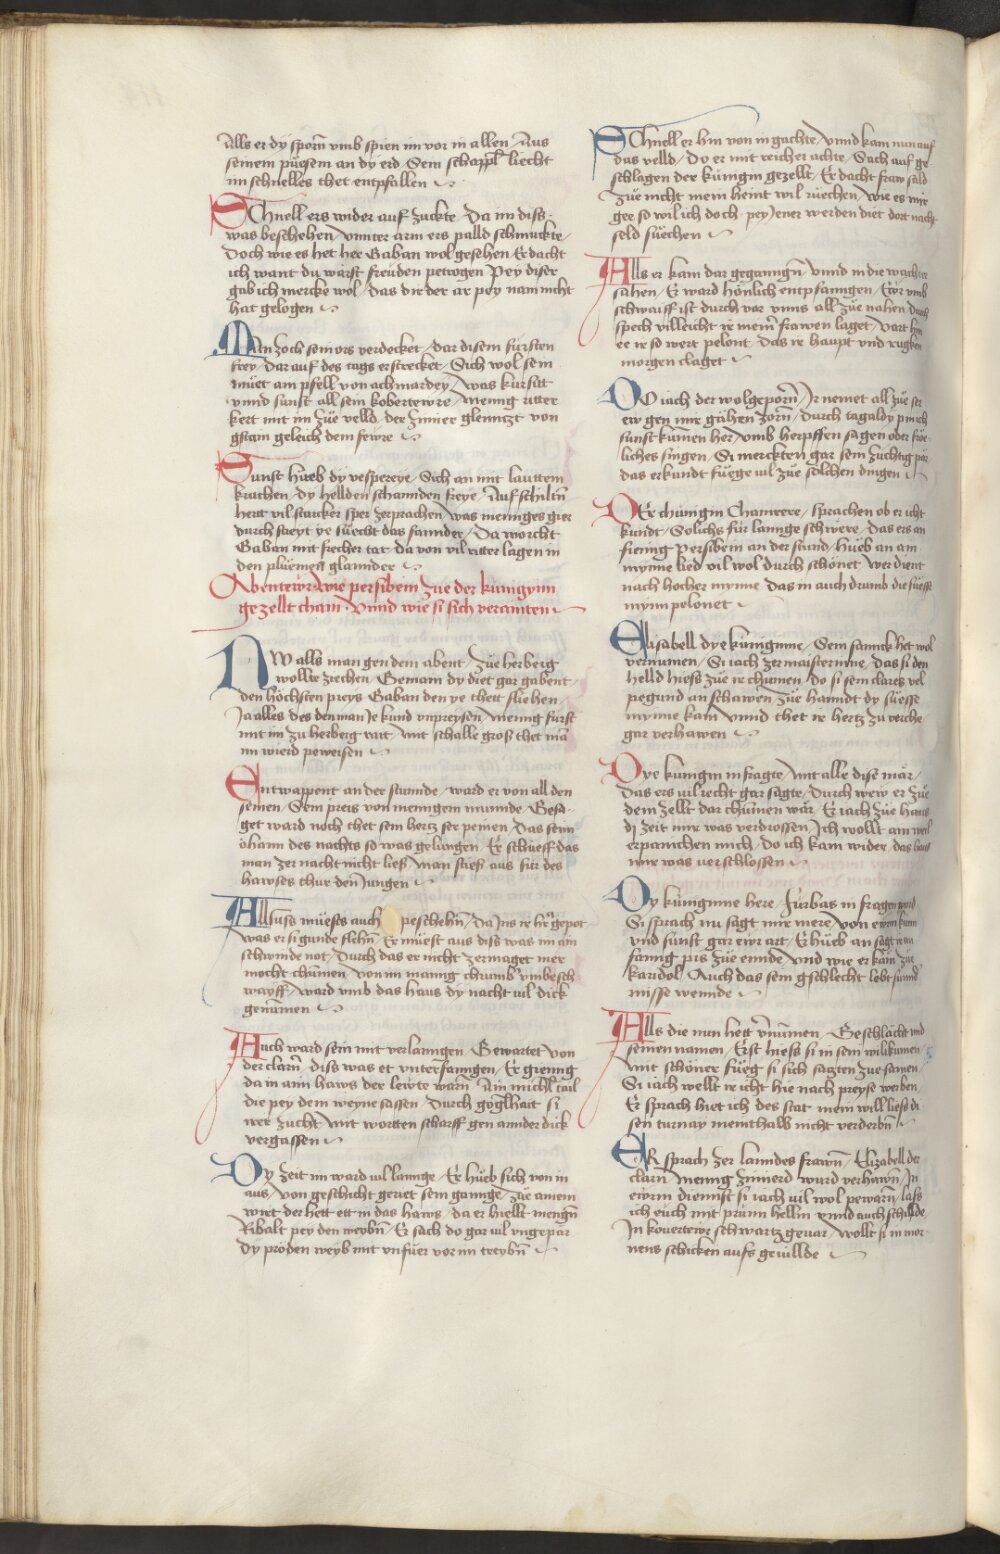 Alls er dy sporn vmb spien im vor in allen / Aus
seinem puesem an dy erd / Sein schappl liecht
im schnelles thet entpfallen
Schnell ers wider auf zuckte / Da im diss
was beschehen / Vnnter arm ers palld schmuckte /
Doch wie es het her Gaban wol gesehen / Er dacht
ich want du wärst freuden petrogen / Pey diser
gab ich mercke wol / Das dir der är pey nam nicht
hat gelogen
Man zoch sein ors verdecket / Dar disem fürsten
frey / Dar auf des tags erstrecket / Sich wol sein
müet am pfell von achmardey / Was kursitt
vnnd sunst all sein kobertewre / Mennig ritter
kert mit im zue velld / der zimier glenntzt von
gstain geleich dem fewre
Sunst hueb dy vespereye / Sich an mit lauttem
krachen / Dy hellden schamiden freye / Auf schiltn
hertt vil starcker sper zerprachen / Was menniges gier
durch streyt ye suecht das samider / Da worcht
Gaban mit frecher tat / da von vil ritter lagen in
den pluemen glannder
Abentewr wie persibein zue der kunigynn
gezellt cham / Vnnd wie si sich verainten
NW alls man gen dem abent / Zue herberg
wollte ziechen / Gemain dy diet gar gabent
den höchsten preys Gaban den ye thett fliehen
Ja alles des den man Je kund vnpreysen / Mennig fürst
mit im zu herberg rait / mit schalle groß thet man
im wierd peweisen
Entwappent an der stunnde / ward er von all den
seinen / Sein preis von mennigem munnde / Gesa
get ward noch thet sein hertz ser peinen / Das seim
öhaim des nachts so was gelungen / Er schueff das
man zer nacht nicht ließ / Man stieß aus für des
hawses thür den Jungen
Allsuss mueses auch peschehn / Da Ins ir hr gepot
was er si gunde flehn / Er müest aus diss was im ain
schwinde not / Durch das er nicht zermaget mer
mocht chumen / von im manig chrumb vmbesch
wayff / Ward vmb das haus dy nacht vil dick
genumen
Auch ward sein mit verlanngen / Gewartet von
der clarn / diss was et vnterfanngen / Er gienng
da in ain haws der lewte warn / Ain michl tail
die pey dem weyne sassen / Durch göglhait si
irer zucht / Mit wortten scharff gen annder dick
vergassen
Dy zeit im ward vil lannge / Er hueb sich von in
aus / Von geschicht geriet sein gannge / Zue ainem
wirt der hett ett in das haws / da er hiellt mengn
Ribalt pey den weybn / Er sach do gar vil vngepar
dy pröden weyb mit vnfuer vor im treybn
Schnell er hin von in gachte / Vnnd kam nun auf
das velld / Do er mit reicher achte / Sach auf ge
schlagen der kunigin gezellt / Er dacht fraw säld
zue nicht mein heint wil ruechen / Wie es mir
gee so wil ich doch / pey Jener werden diet dort nacht
seld suechen
Alls er kam dar geganngn / Vnnd in die wachter
sahen / Er ward hönlich entpfanngen / Ewr vmb
schwaiff ist durch var vnns all zue nahen / Durch
spech villeicht ir meinr frawen laget / Vart hin
ee ir so wert pelont / Das ir haupt vnd rugken
morgen claget
Do iach der wolgeporn / Ir nemet all zue ser
ew gen mir gähen zorn / Durch tagaldy pin ich
sunst kumen her / Vmb herpffen sagen oder fröe
liches singen / Si merckten gar sein zuchtig par
das er kundt fuege vil zue solchen dingen
Der chunigin Chamrere / sprachen ob er icht
kundt / Solichs für lannge schwere / Das ers an
fienng Persibein an der stund / hueb an ain
mynne lied vil wol durch schönet / Wer dient
nach hocher mynne / Das in auch drumb die suesse
mynn pelonet
Elisabell dye kunigynne / Sein sannck het wol
vernumen / Si iach zer maisterinne / Das si den
helld hieß zue ir chumen / do si sein clares vel
pegund an schawen / Zue hanndt dy suesse
mynne kam / Vnnd thet ir hertz zu reiche
gar verhawen
Dye kunigin in fragte / Mit alle dise mär /
Das ers vil recht gar sagte / Durch wew er zue
dem zellt dar chumen wär / Er iach zue haus
dy zeit mir was verdrossen / Ich wollt ain weil
erpanichen mich / Do ich kam wider das haus
mir was verschlossen
Dy kunigynne here / Fürbas in fragen ward
Si sprach nu sagt mir mere / Von ewrm kum
vnd sunst gar ewr art / Er hueb an sagt vom
fanng pis zue ennde / Vnd wie er kam zue
karidol / Auch das sein gschlecht lebt sunnd
misse wennde
Alls die nun hett vernumen / Geschlächt vnd
seinen namen / Erst hieß si in sein wilikumen
Mit schöner fueg si sich satzten zue samen
Si iach wellt ir icht hie nach preyse werben
Er sprach hiet ich des stat / mein will ließ di
sen turnay meinthalb nicht verderbn
Er sprach zer lanndes frawn / Elizabell der
clarn / Mennig zimierd wurd verhawn / In
ewrm dienst si iach vil wol pewarn / lass
ich euch mit prünn hellm vnnd auch schillde
In kovertewr schwartz gevar / Wollt si im mor
nens schicken aufs gevillde